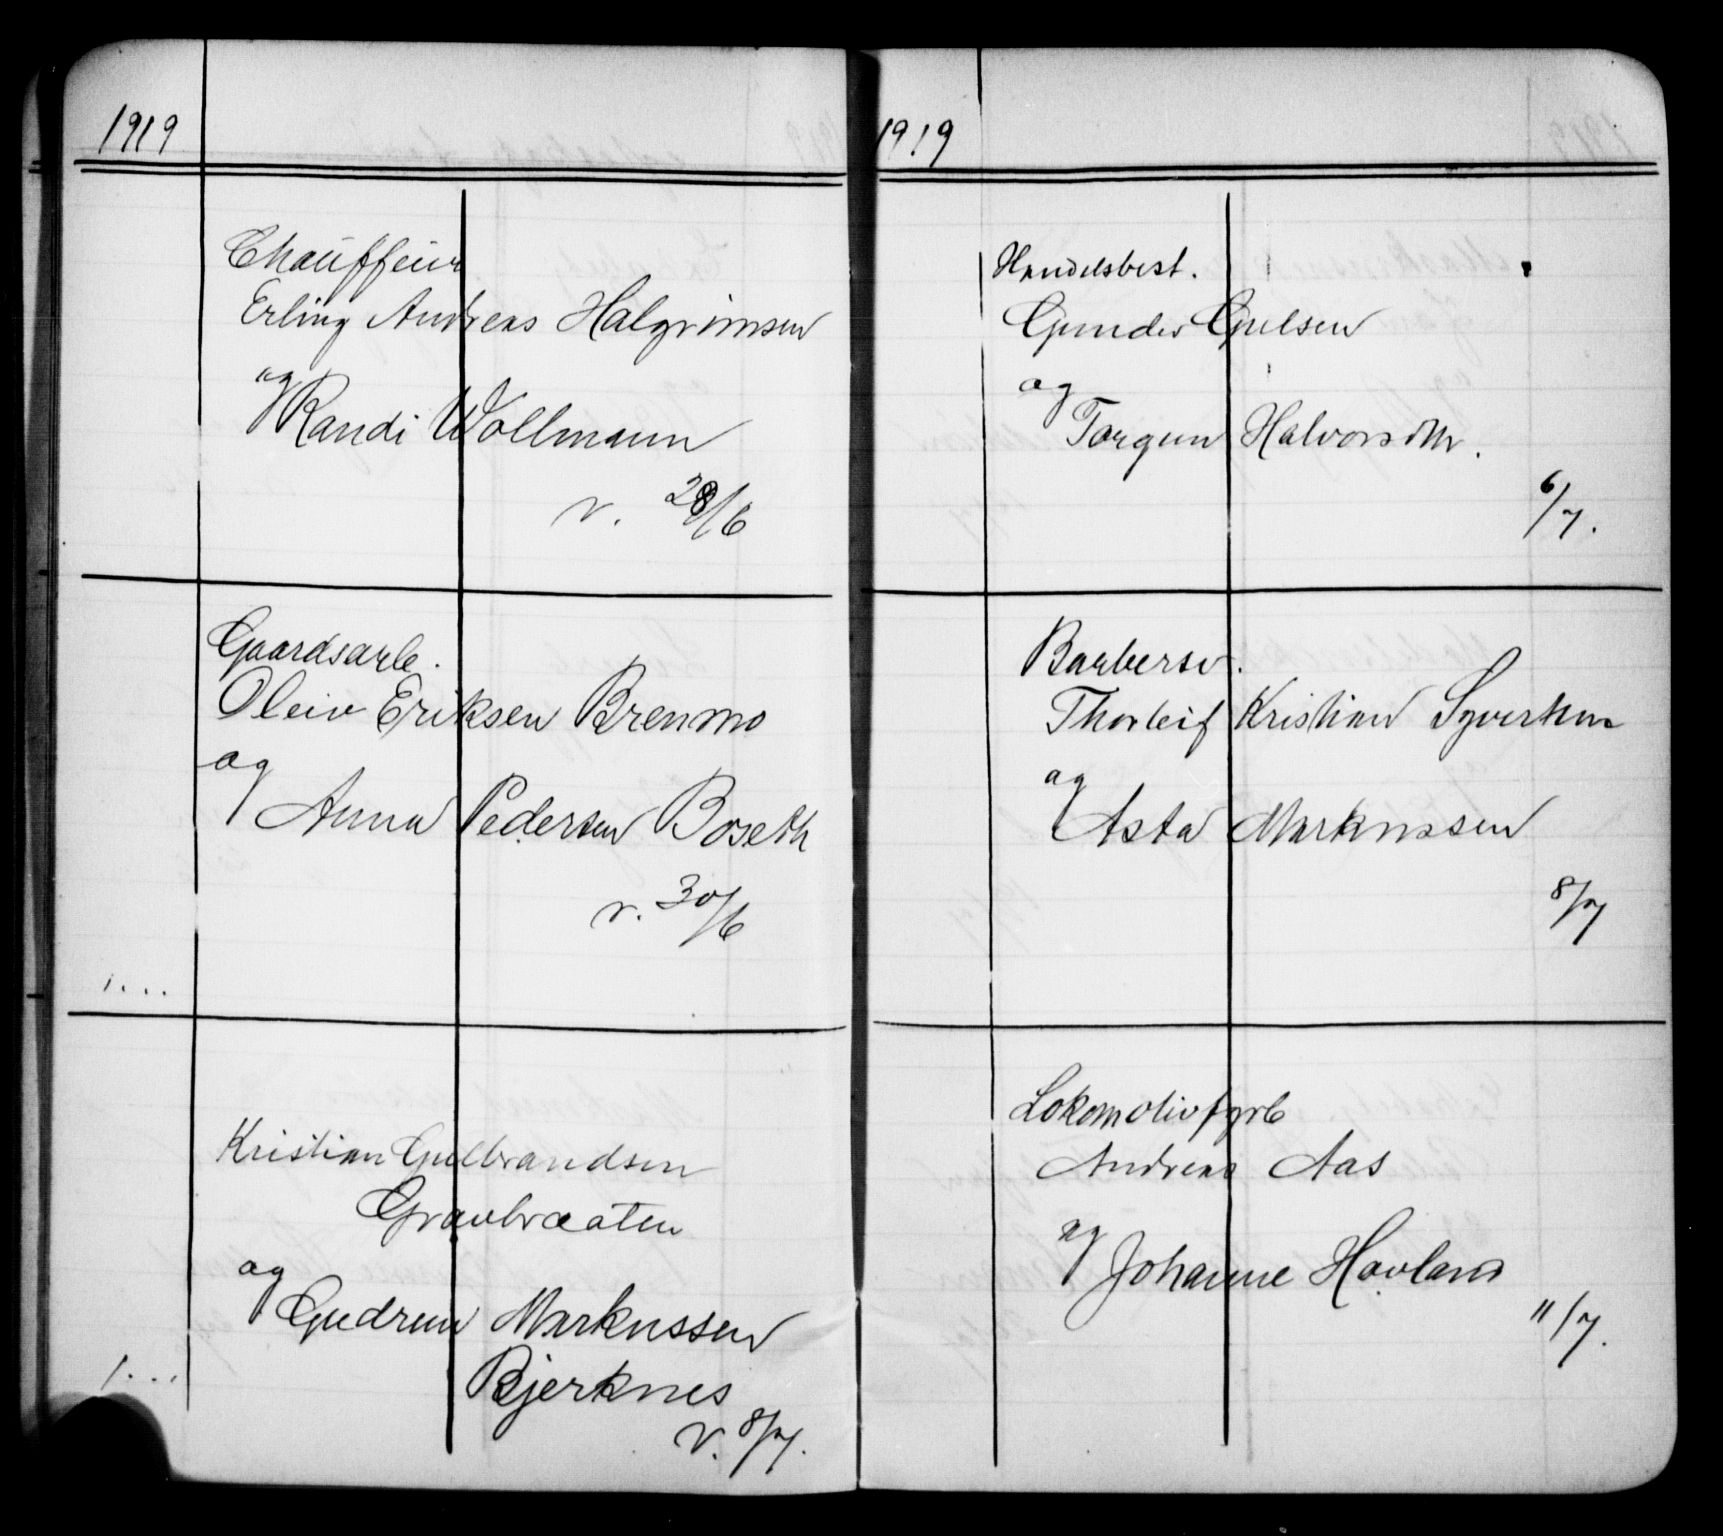 1919
Chauffeur
Erling Andreas Halgrimsen
og
Randi Wollmann
v. 28/6
Gaardsarb.
Oleiv Eriksen Brenmo
og
Anna Pedersen Boseth
v. 30/6
1...
Kristian Gulbrandsen
Gravbraaten
og
Gudrun Markussen
Bjerknes
1...
v. 8/7.
1919
Handelsbest.
Gunder Gulsen
og
Torgun Halvorsdtr.
6/7.
Barbersv.
Thorleif Kristian Syversen
og
Asta Markussen
8/7
Lokomotivfyrb
Andreas Aas
og
Johanne Hovland
11/7.